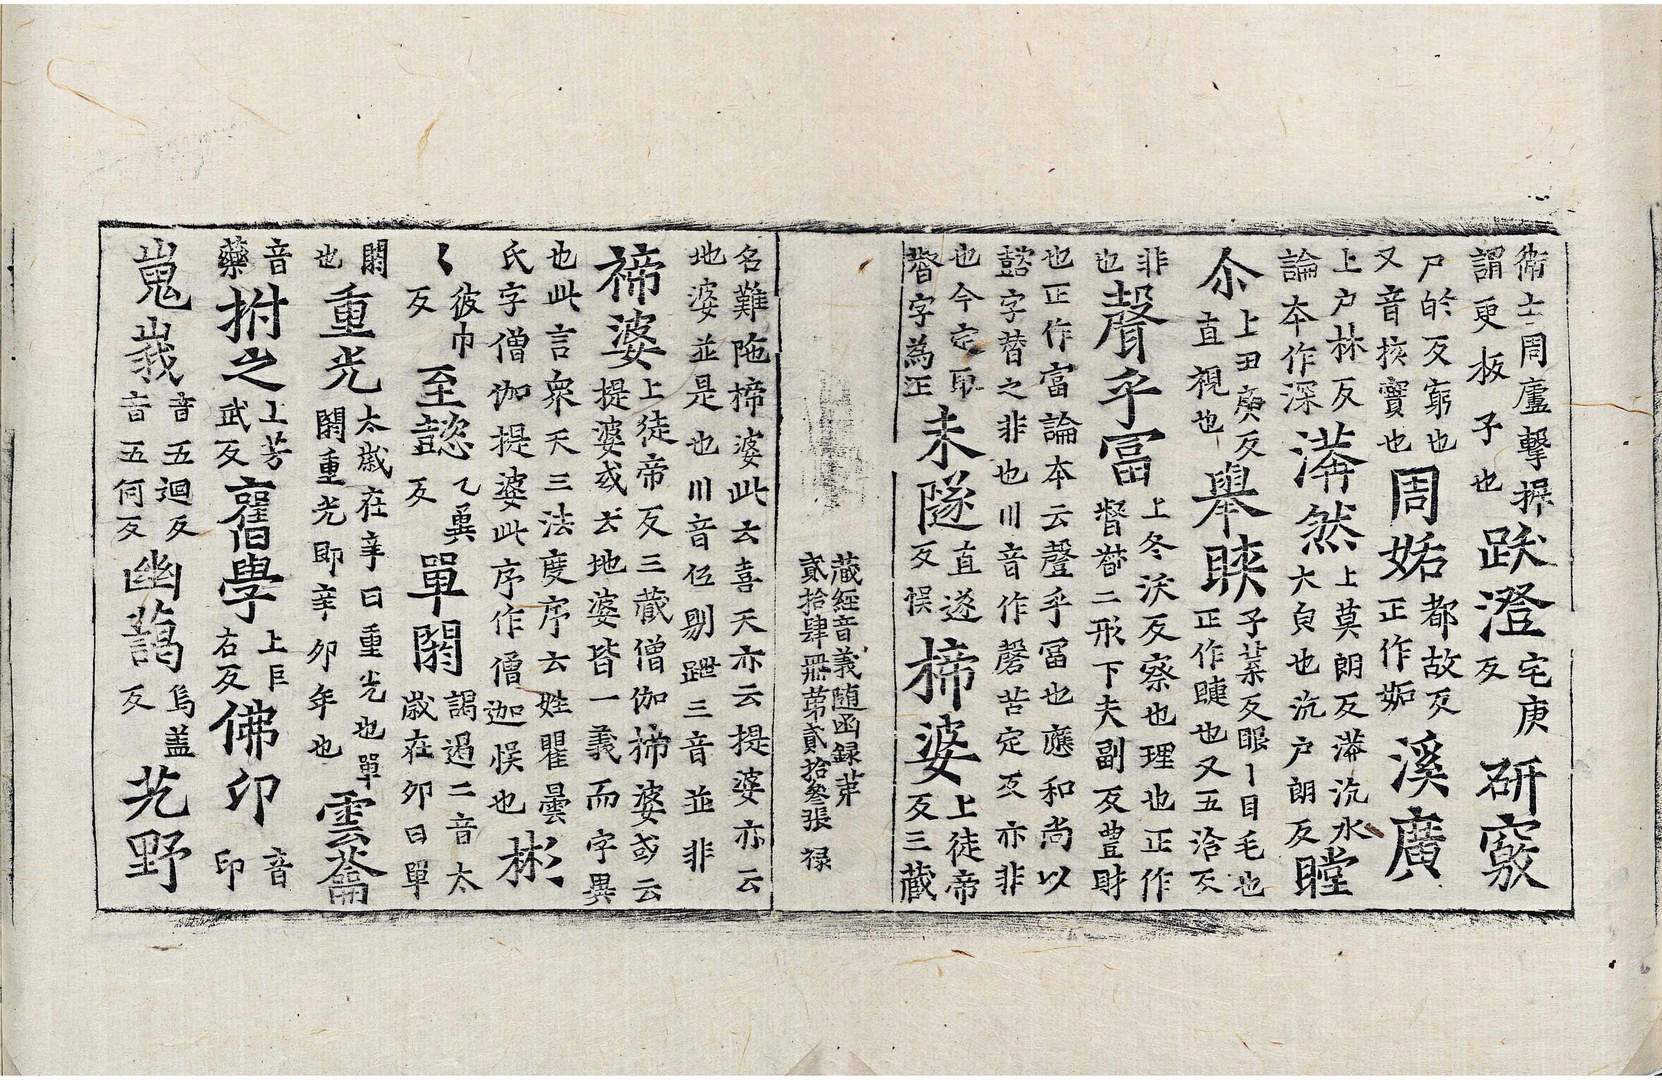 衛士周廬擊㯓
謂更板子也跌澄宅庚反研竅
尸的反穷也
又音挍竇也周姤都故反正作妬溪廣
上户林反
論本作深漭然上莫朗反漭沆水大皃也沆户朗反瞠
上丑庚反
直視也舉睫子葉反眼丨目毛也正作睫也又五洽反
非
也聲乎冨上冬沃反察也理也正作督二形下夫副反豊財
也正作富論本云聲乎冨也應和尚以
字替之非也川音作磬苦定反亦非
也今定取
字為正未隧直遂反悮楴婆上徒帝反三藏
藏經音義随函録苐
貳拾肆冊苐貳拾叄張 禄
名難陁楴婆此云喜天亦云提婆亦云
地婆並是也川音伍剔跇三音並非
禘婆上徒帝反三藏僧伽楴婆或云提婆或云地婆皆一義而字異
也此言衆天三法度序云姓瞿曇
氏字僧伽提婆此序作僧迦悮也彬
彼巾反至懿乙兾反單閼謁遏二音太歳在卯曰單
閼
也重光太歳在辛曰重光也單閼重光即辛卯年也雲龠
音
藥拊之上芳武反舊學上巨右反佛印音印
嵬峩音五迴反音五何反幽藹烏盖反艽野